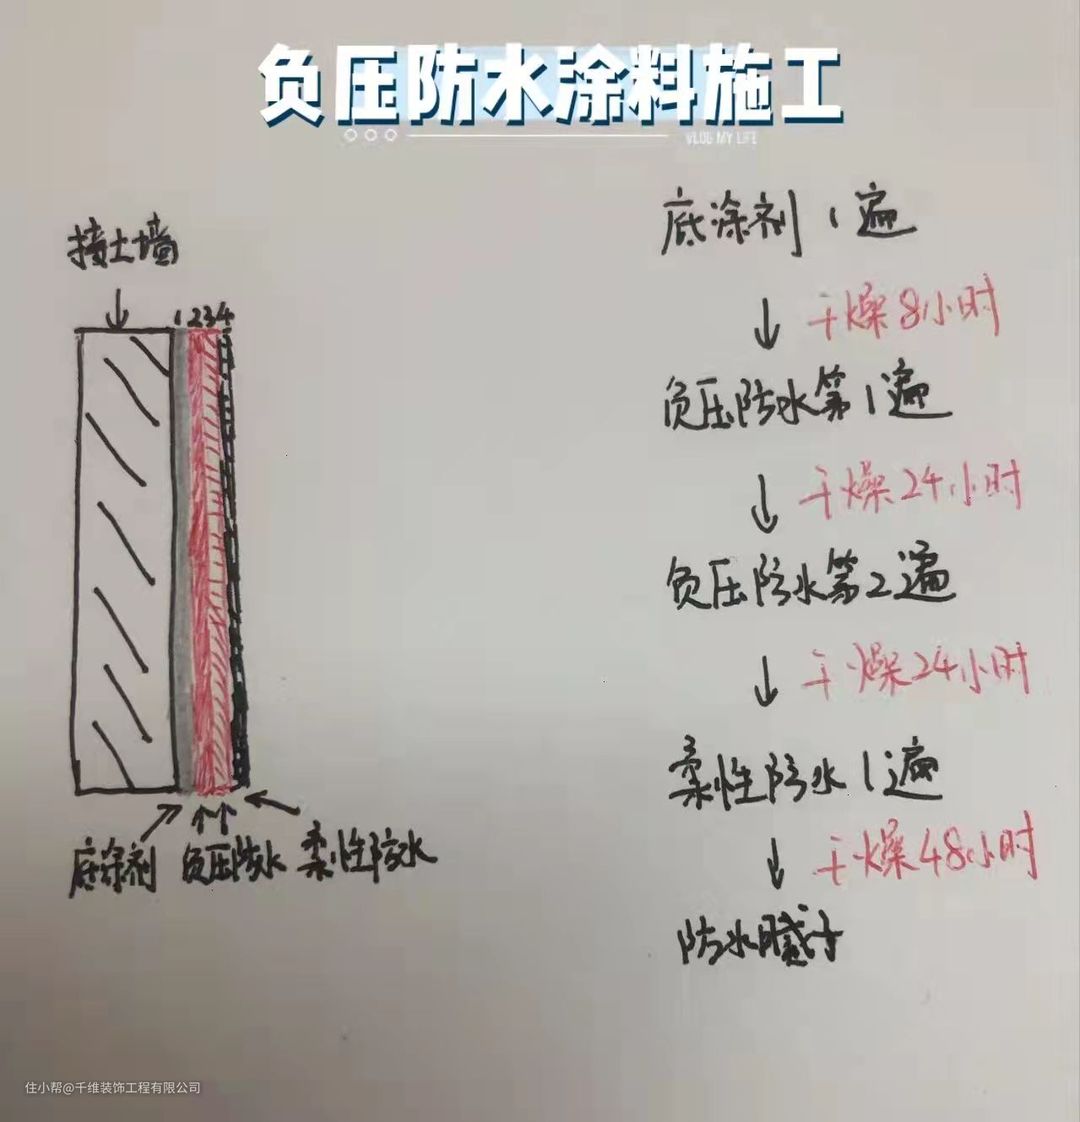 负压防水涂料施工
VLOG MY LIFE
接土墙
1 2 3 4
底涂剂 负压防水 柔性防水
底涂剂 1遍
干燥8小时
负压防水第1遍
干燥24小时
负压防水第2遍
干燥24小时
柔性防水1遍
干燥48小时
防水腻子
住小帮@千维装饰工程有限公司